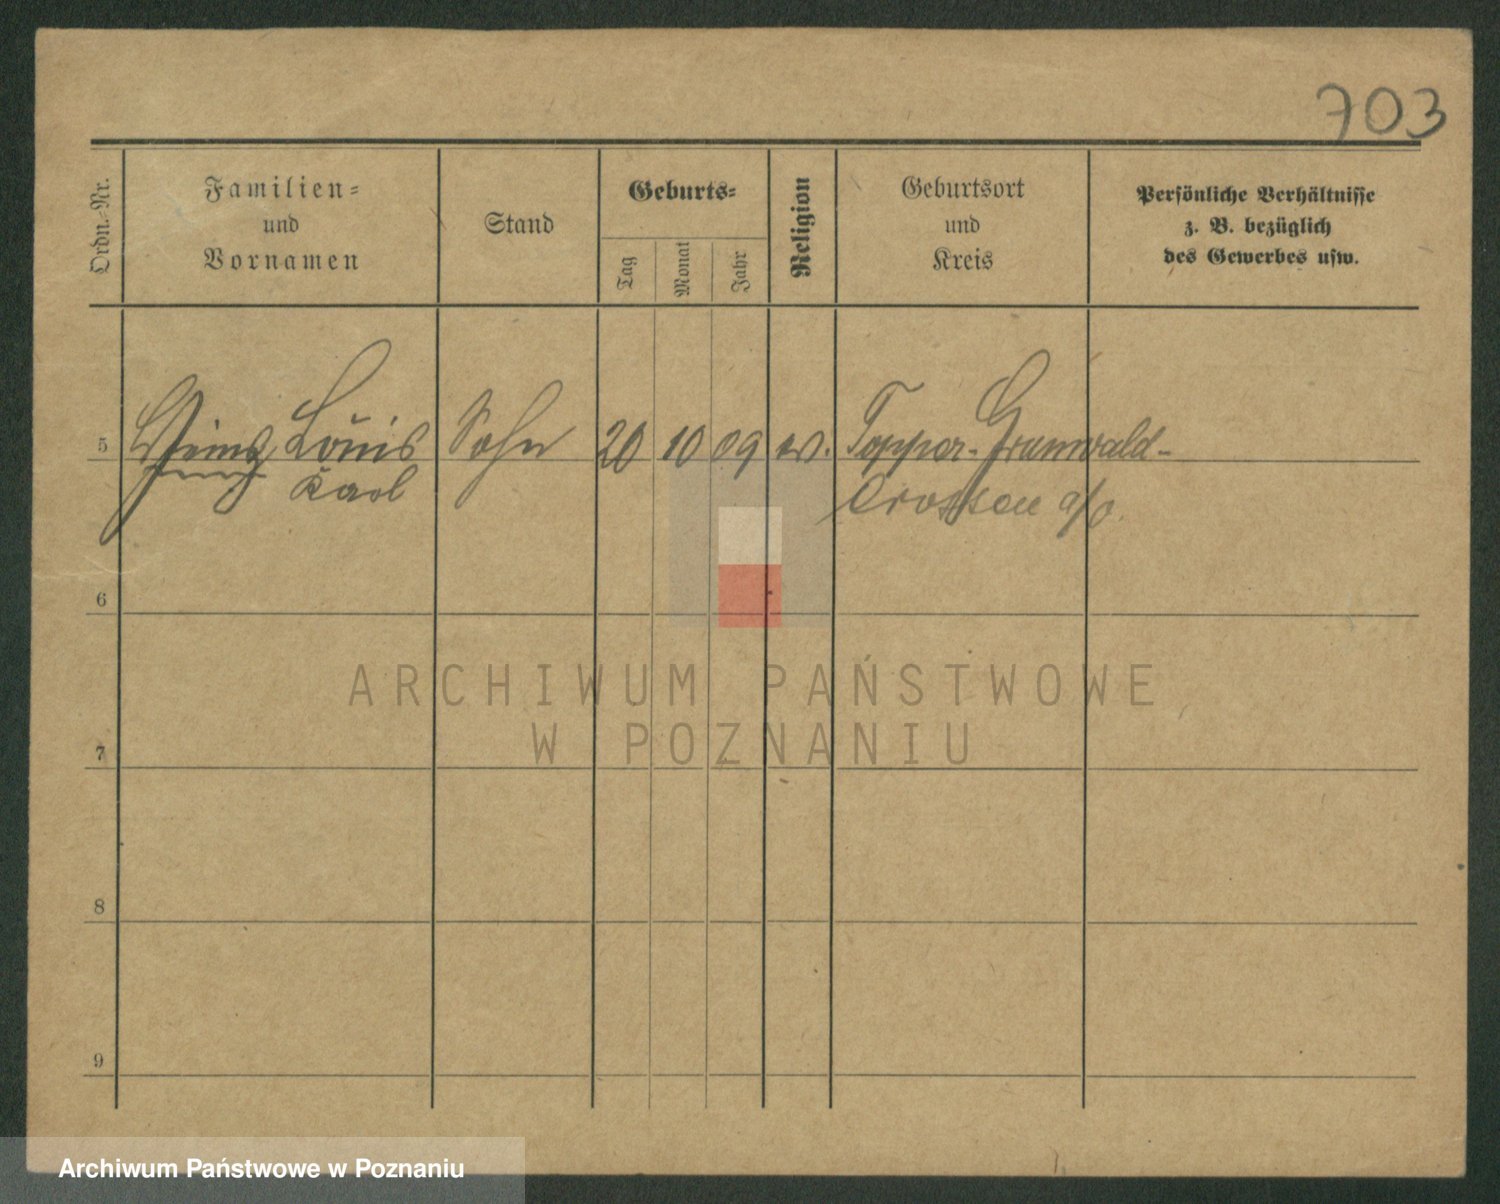 703
Ordn.-Nr.
Familien-
und
Vornamen
Stand
Geburts-
Tag
Monat
Jahr
Religion
Geburtsort
und
Kreis
Persönliche Verhältnisse
z. B. bezüglich
des Gewerbes usw.
5 Heinz, Louis Sohn 20 10 09 ev. Topper-Grunwald-
Karl Crossen a/O.
6
7
8
9
ARCHIWUM PAŃSTWOWE
W POZNANIU
Archiwum Państwowe w Poznaniu